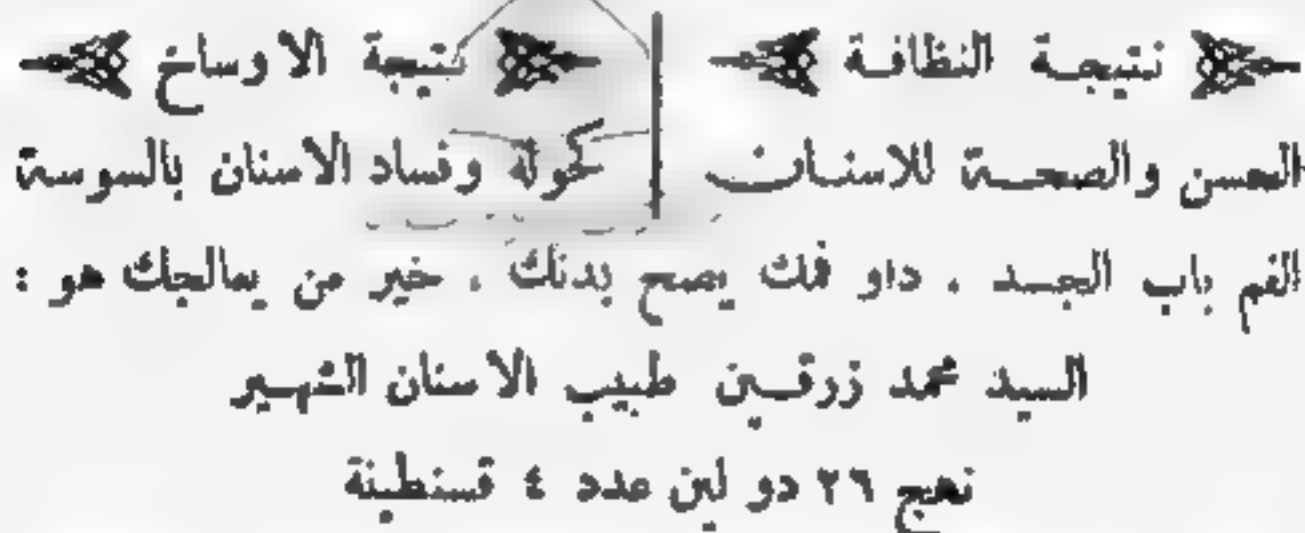 نتيجة النظافة
الحسن والصحة للاسنان
نتيجة الاوساخ
كحولة وفساد الاسنان بالسوسة
الفم باب الجسد . داو فمك يصح بدنك . خير من يعالجك هو :
السيد محمد زرقين طبيب الاسنان الشهير
نهج ٢٦ دو لين عدد ٤ قسنطينة